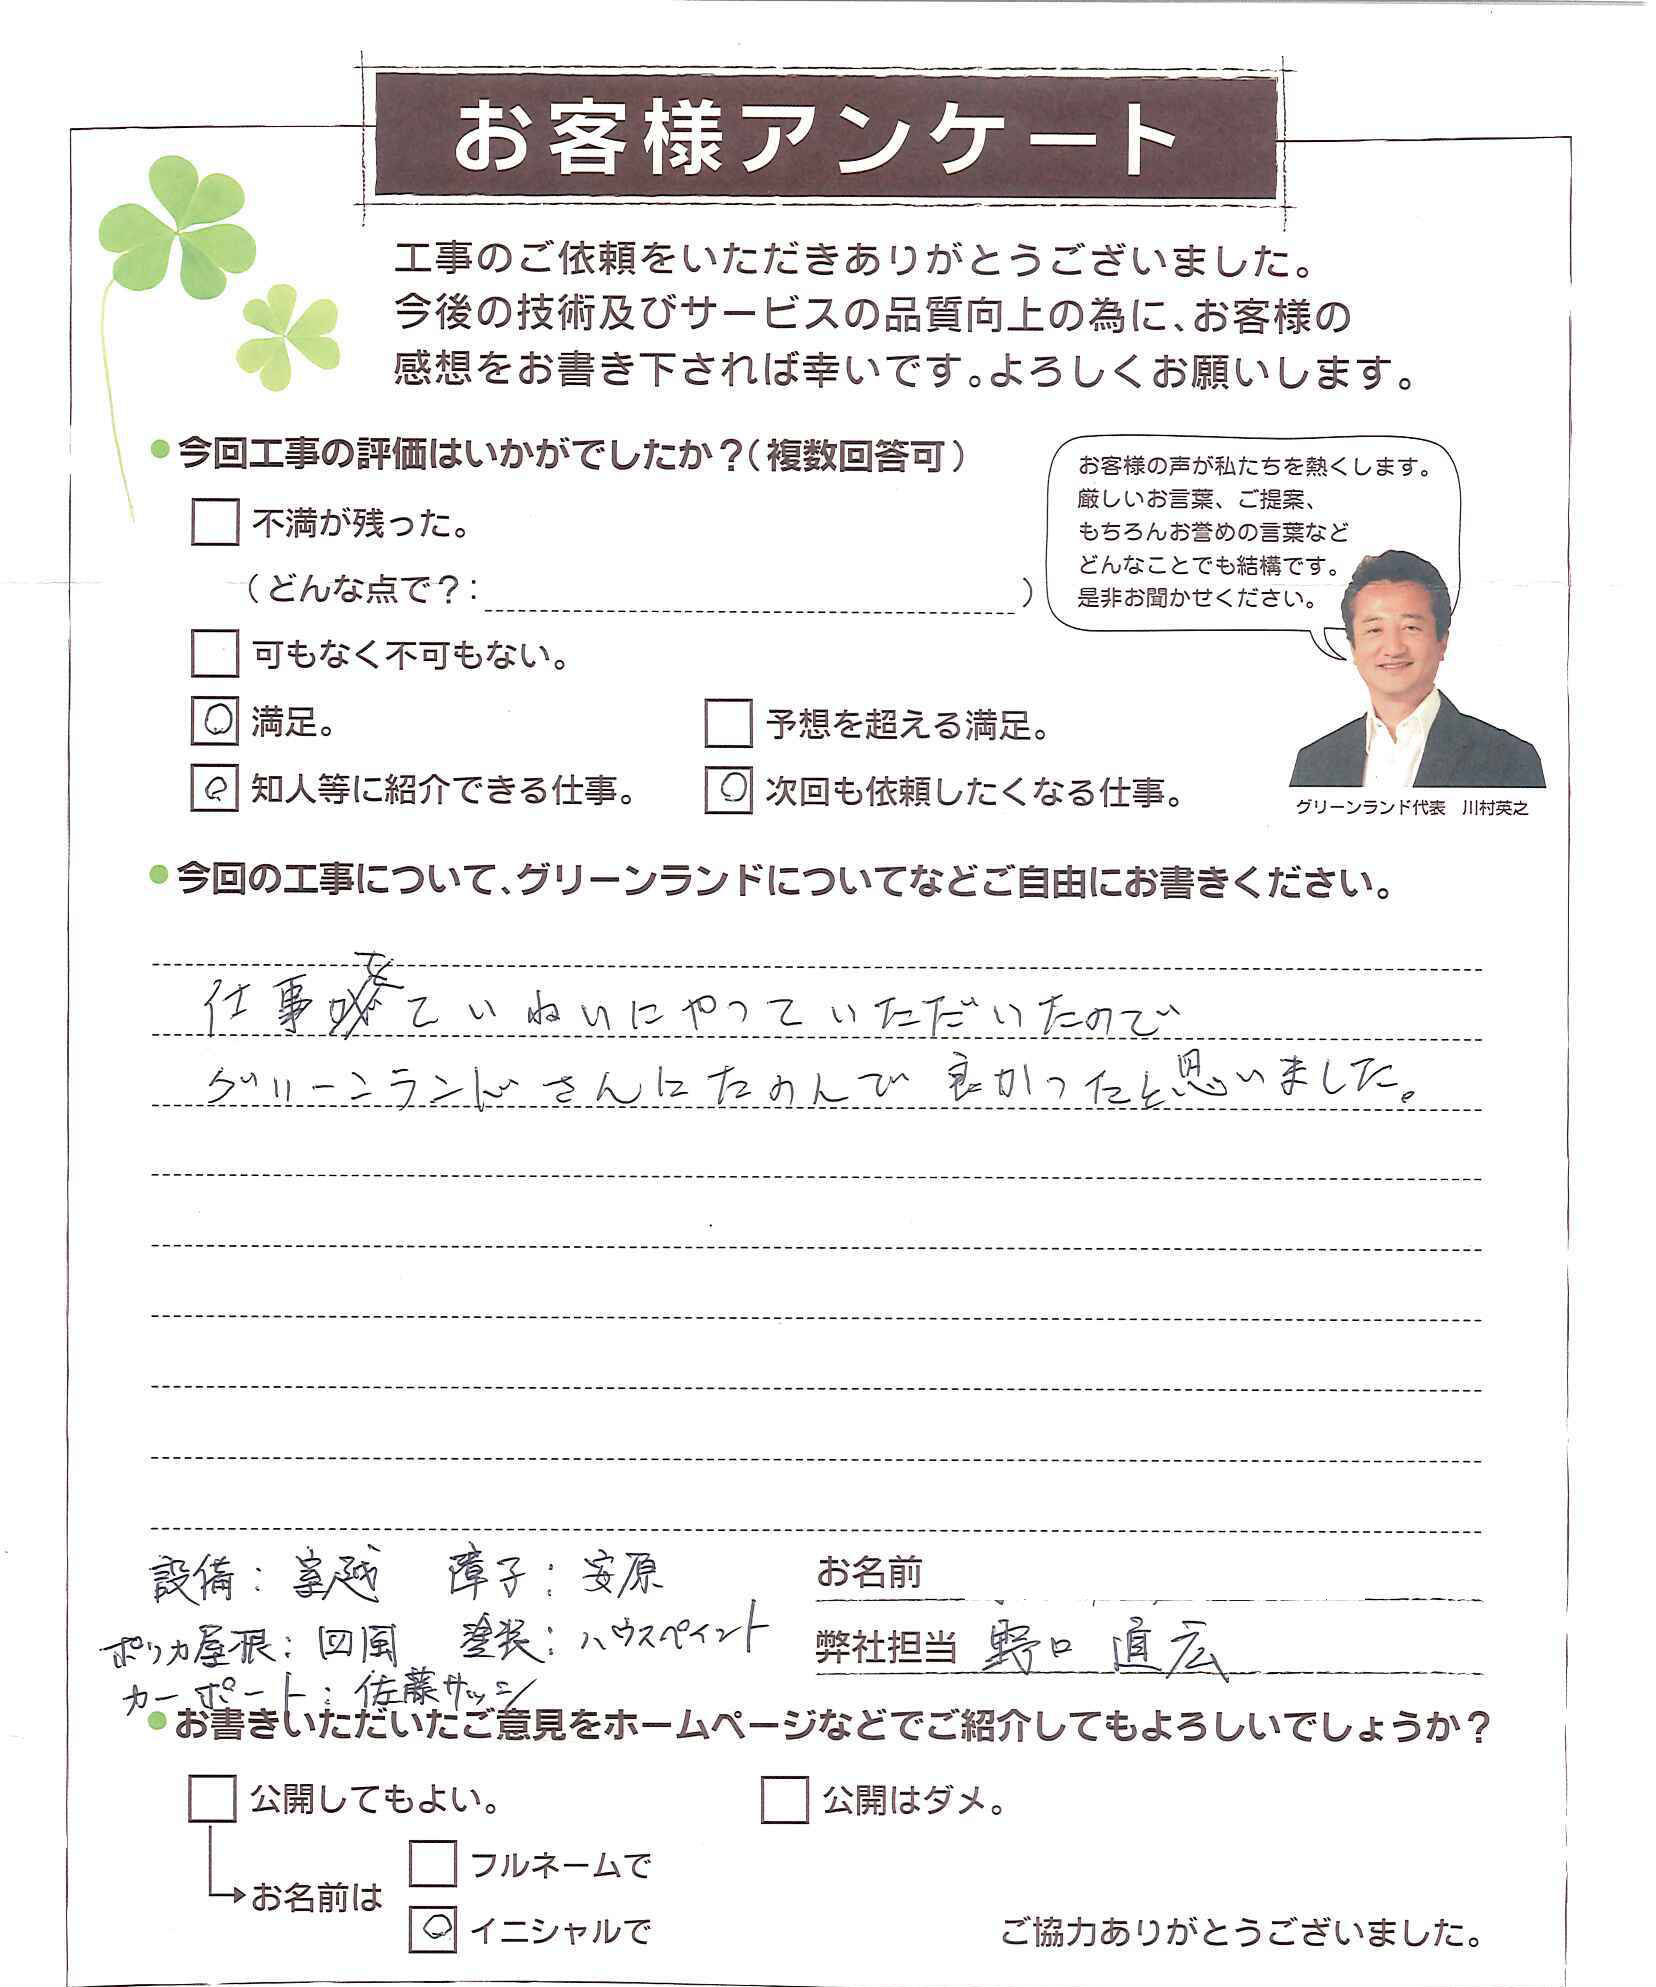 お客様アンケート
工事のご依頼をいただきありがとうございました。
今後の技術及びサービスの品質向上の為に、お客様の
感想をお書き下されば幸いです。よろしくお願いします。
今回工事の評価はいかがでしたか？（複数回答可）
お客様の声が私たちを熱くします。
厳しいお言葉、ご提案、
もちろんお誉めの言葉など
どんなことでも結構です。
是非お聞かせください。
不満が残った。
（どんな点で？：　）
可もなく不可もない。
満足。
予想を超える満足。
知人等に紹介できる仕事。
次回も依頼したくなる仕事。
グリーンランド代表　川村英之
今回の工事について、グリーンランドについてなどご自由にお書きください。
仕事をていねいにやっていただいたので
グリーンランドさんにたのんで良かったと思いました。
設備：室越　障子：安原
お名前
ポリカ屋根：四国　塗装：ハウスペイント
弊社担当　野口　直広
カーポート：佐藤サッシ
お書きいただいたご意見をホームページなどでご紹介してもよろしいでしょうか？
公開してもよい。
公開はダメ。
お名前は
フルネームで
イニシャルで
ご協力ありがとうございました。